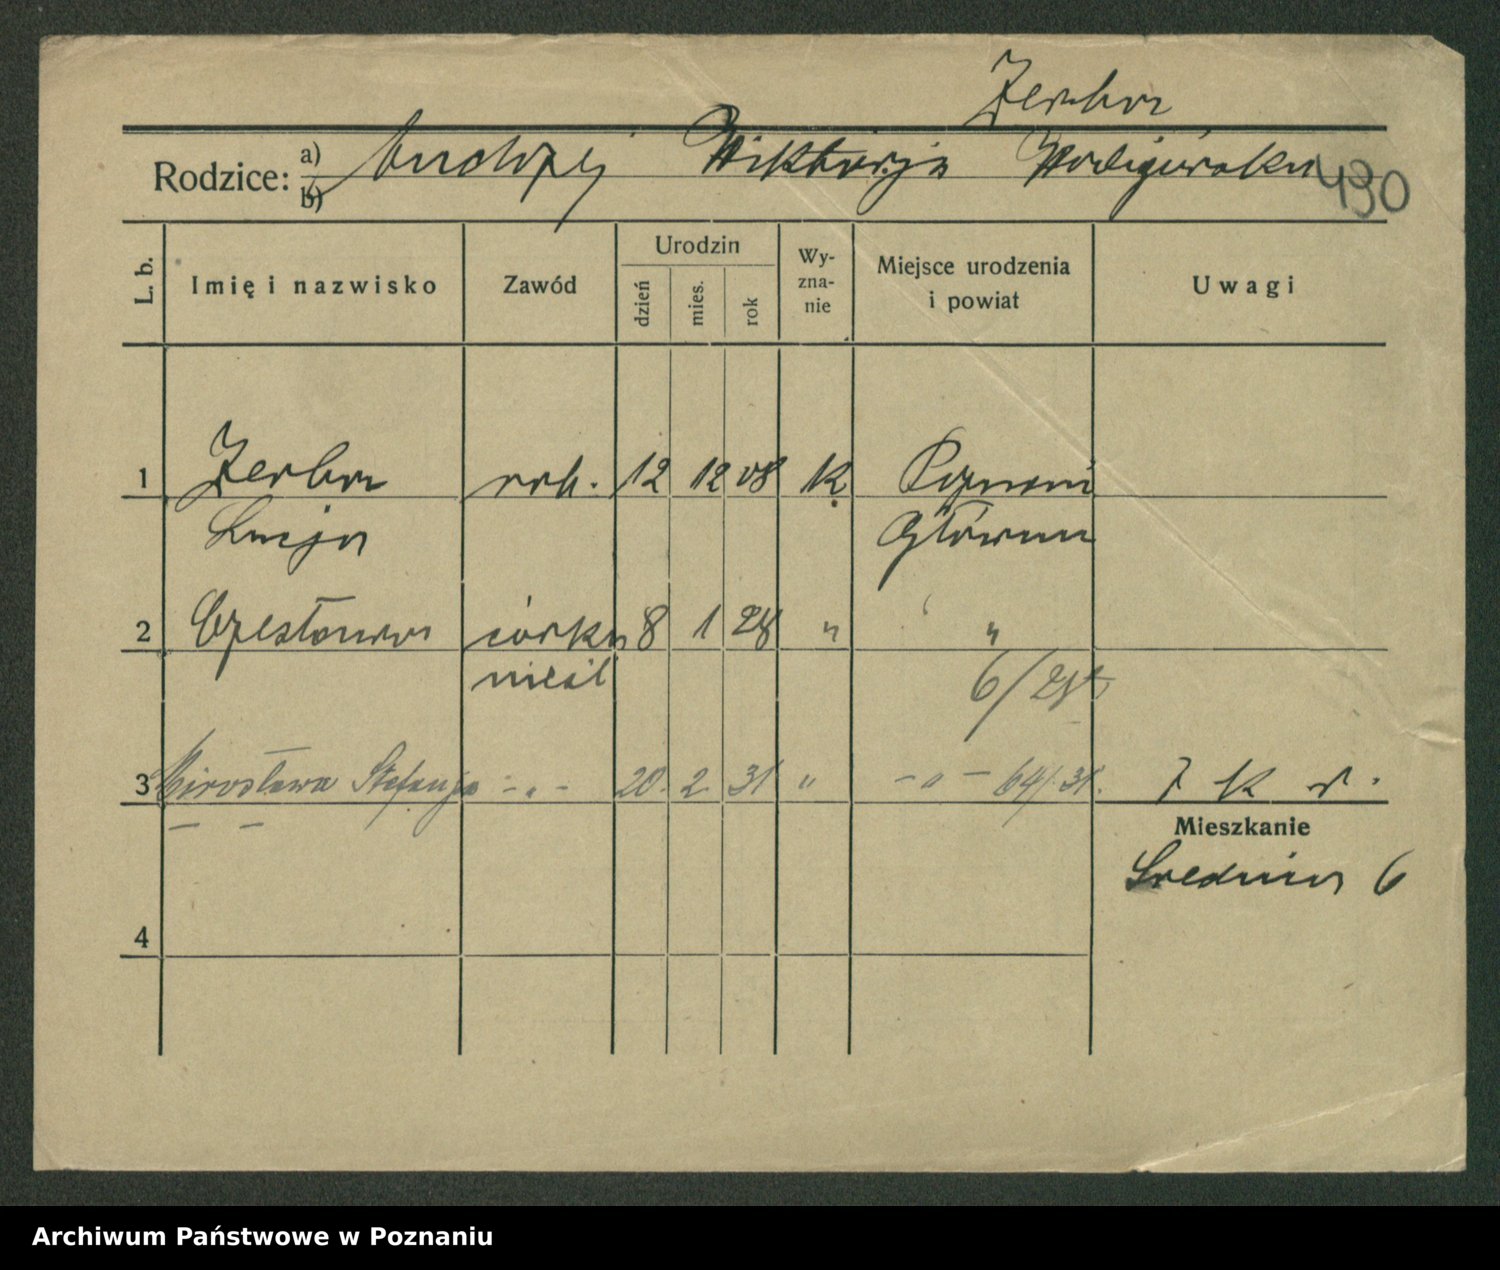 Zerba
Rodzice: a) Andrzej Wiktorja
b)
430
L. b. Imię i nazwisko Zawód Urodzin dzień mies. rok Wyznanie Miejsce urodzenia i powiat Uwagi
1 Zerba rob. 12 12 08 k Poznań
Łucja Główna
2 Czesława córka 8 1 28 " "
nieśl 6/28
3 Mirosława Stefanja - " - 20. 2. 31 " - " - 64/31. 7 k r.
Mieszkanie
Średnia 6
4
Archiwum Państwowe w Poznaniu